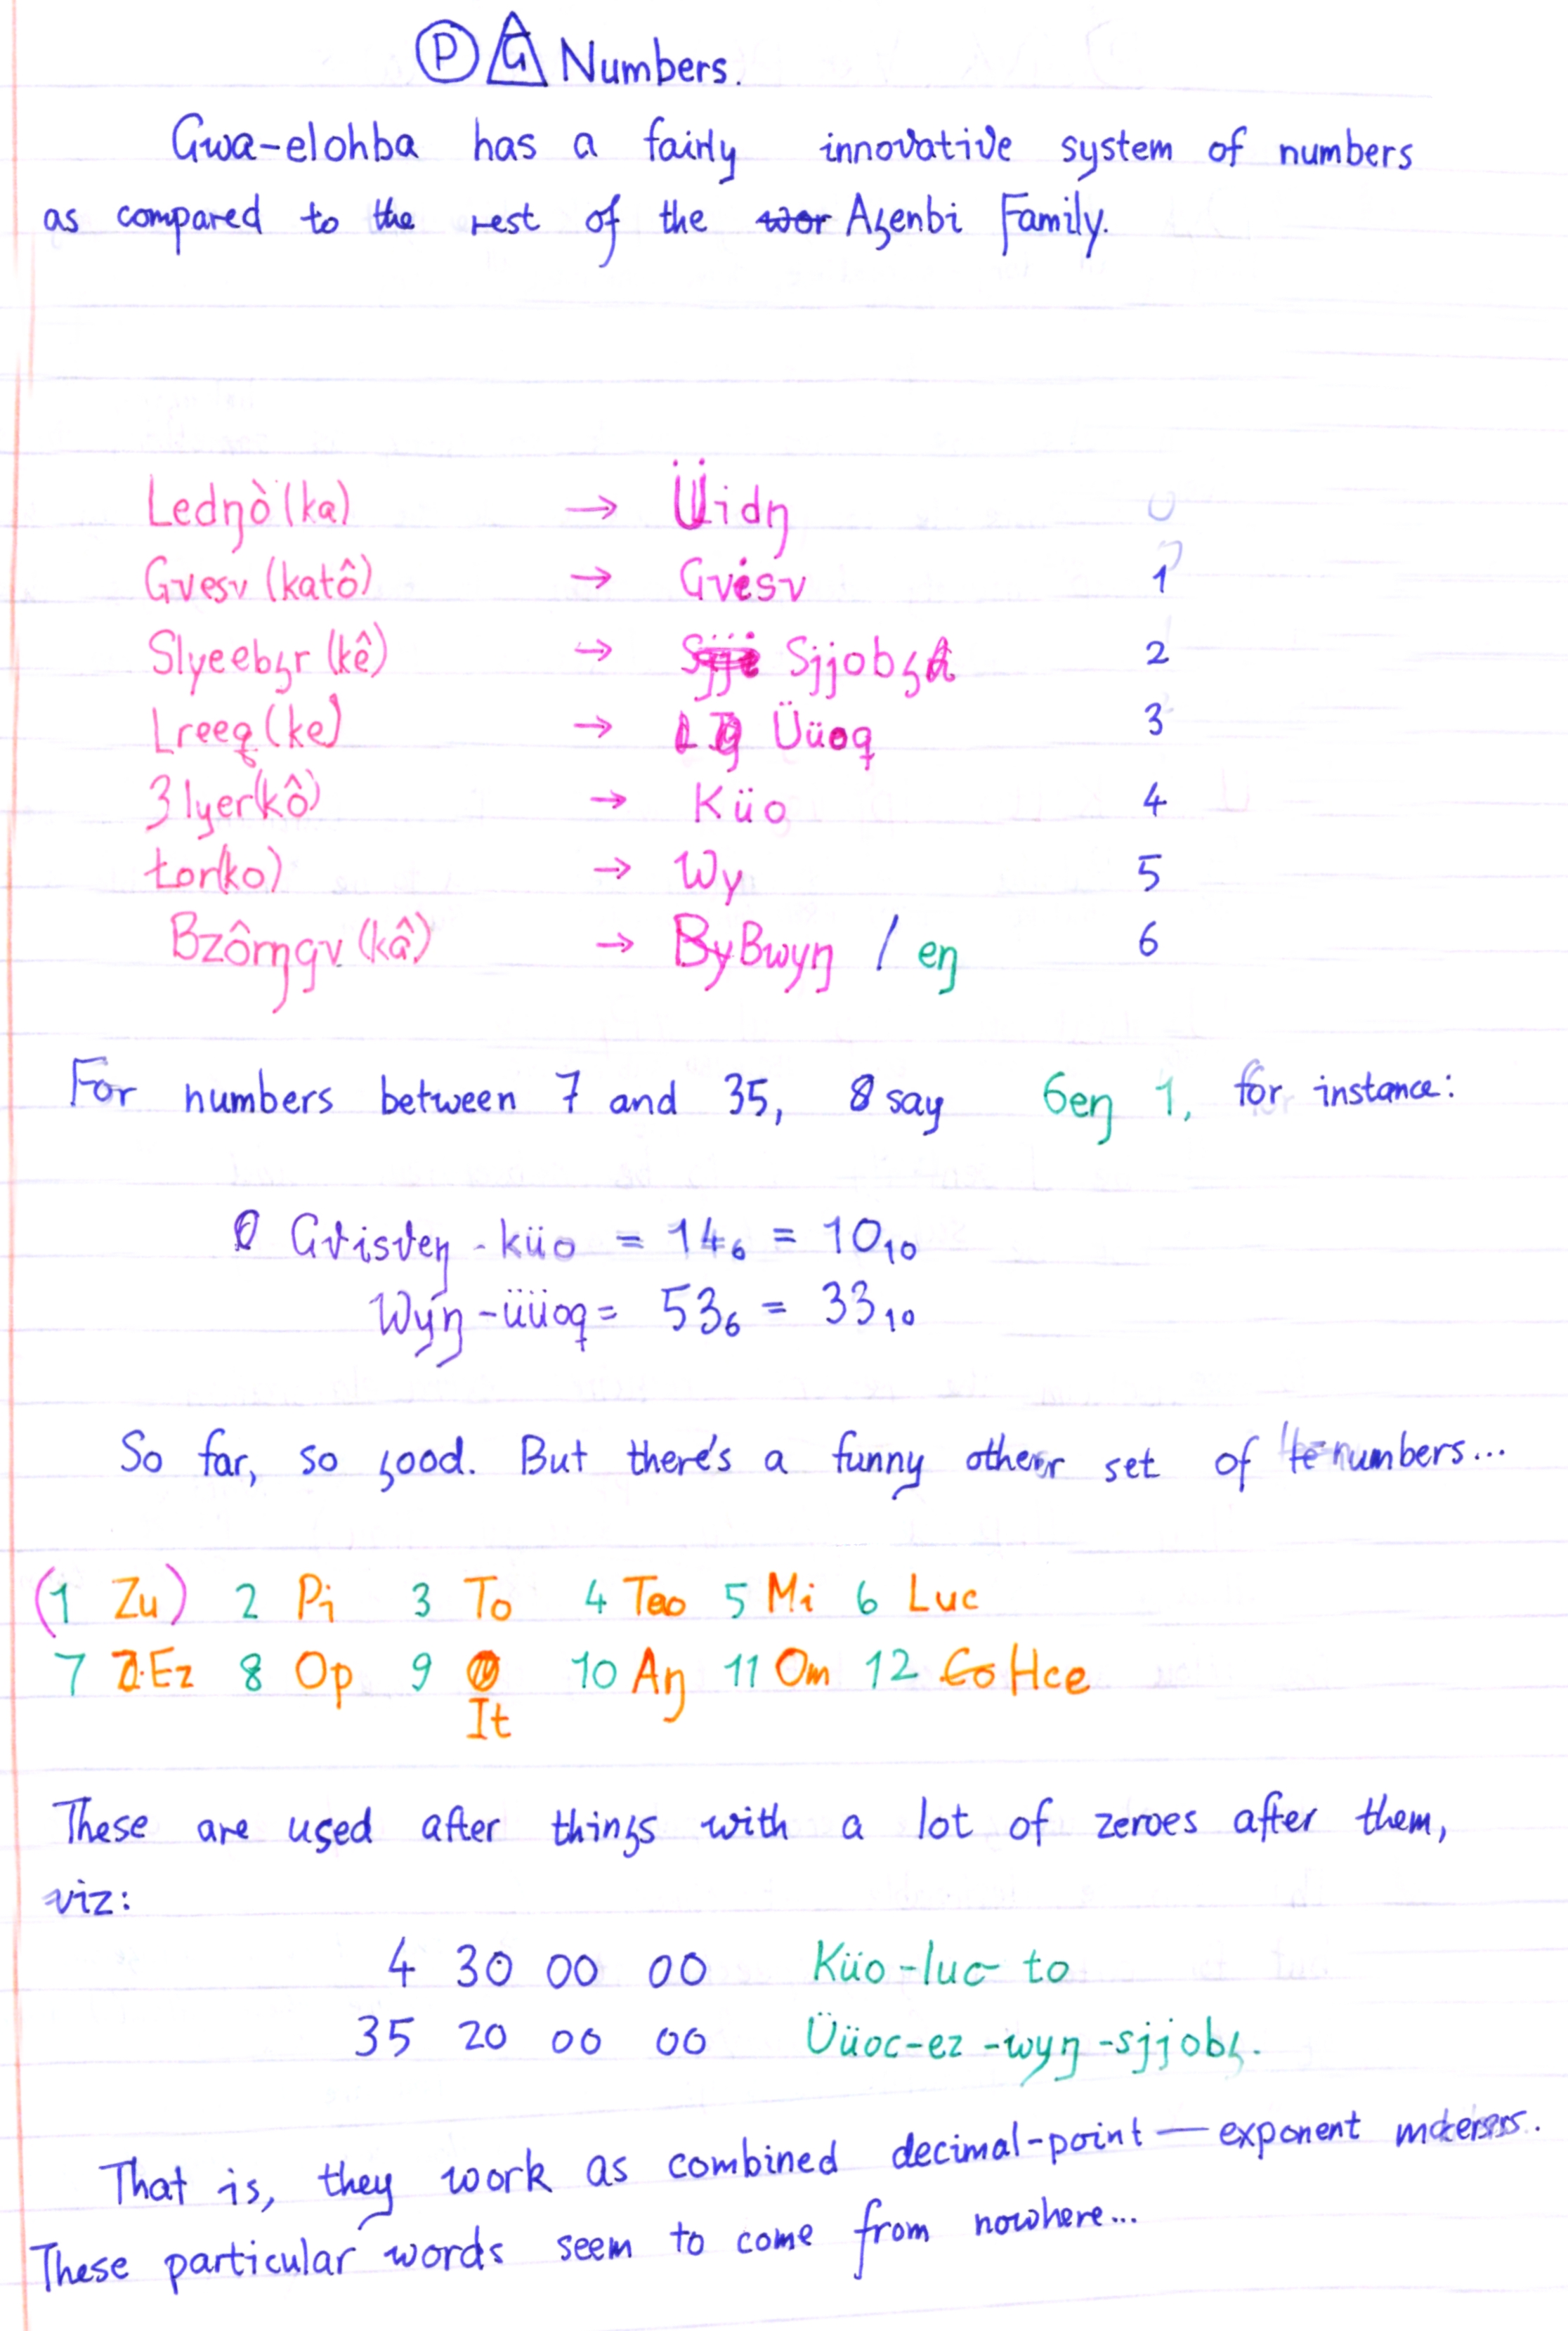 P G Numbers.
Gwa-elohba has a fairly innovative system of numbers
as compared to the rest of the wor Aȝenbi Family.
Ledŋò (ka) → Üidŋ 0
Gvesv (katô) → Gvisv 1
Slyeebȝr (kê) → Sjjobȝ 2
Lreeq (ke) → Üüoq 3
ʒlyer (kô) → Küo 4
tor(ko) → Wy 5
Bzômŋgv (kâ) → By Bwyŋ / eŋ 6
For numbers between 7 and 35, say 6eŋ 1, for instance:
Gvisveŋ - küo = 14₆ = 10₁₀
Wyŋ - üüoq = 53₆ = 33₁₀
So far, so ȝood. But there's a funny other set of numbers...
(1 Zu) 2 Pi 3 To 4 Teo 5 Mi 6 Luc
7 Ez 8 Op 9 It 10 Aŋ 11 Om 12 Co Hce
These are used after thinȝs with a lot of zeroes after them,
viz:
4 30 00 00 Küo-luc to
35 20 00 00 Üüoc-ez-wyŋ-sjjobȝ.
That is, they work as combined decimal-point — exponent
These particular words seem to come from nowhere...